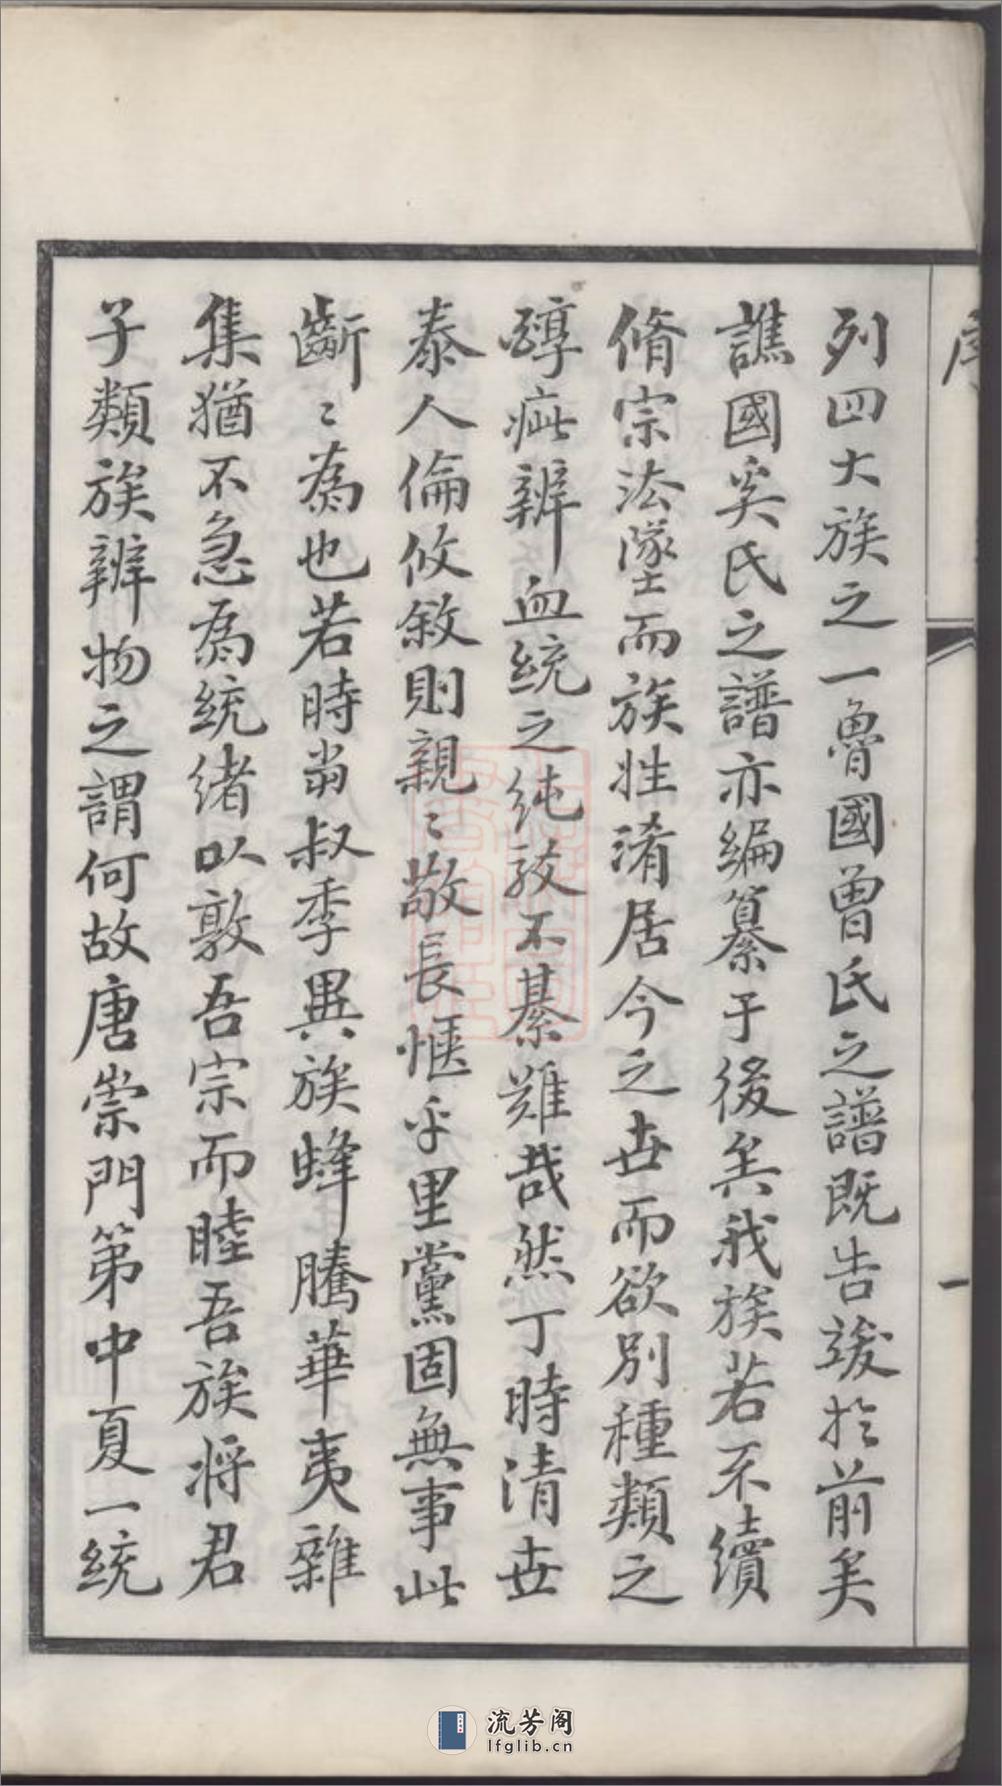 列四大族之一魯國曾氏之譜既告竣扵前矣
譙國奚氏之譜亦編纂于後矣我族若不續
脩宗法墜而族姓淆居今之世而欲別種類之
醇疵辨血統之純駁不綦難哉然丁時清世
泰人倫攸敘則親〻敬長愜乎里黨固無事此
斷〻為也若時當叔季異族蜂騰華夷雜
集猶不急為統緒以敦吾宗而睦吾族將君
子類族辨物之謂何故唐崇門第中夏一統
一
流芳阁
lfglib.cn